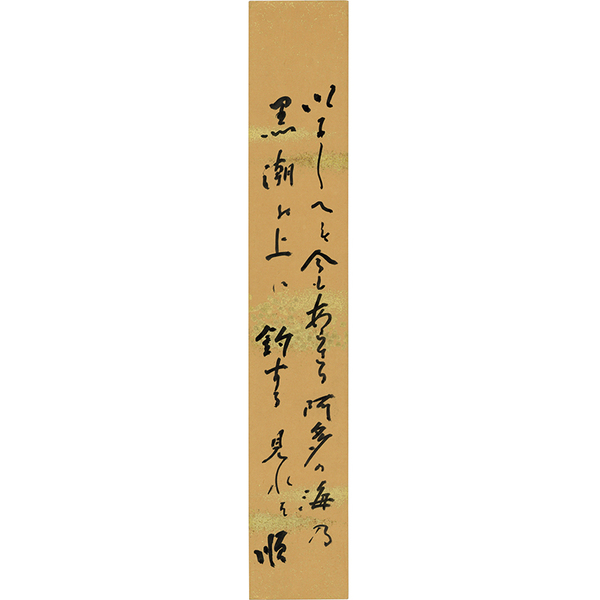 いにしへも今もあらぬ阿多の海乃
黒潮の上に釣する見れは 順